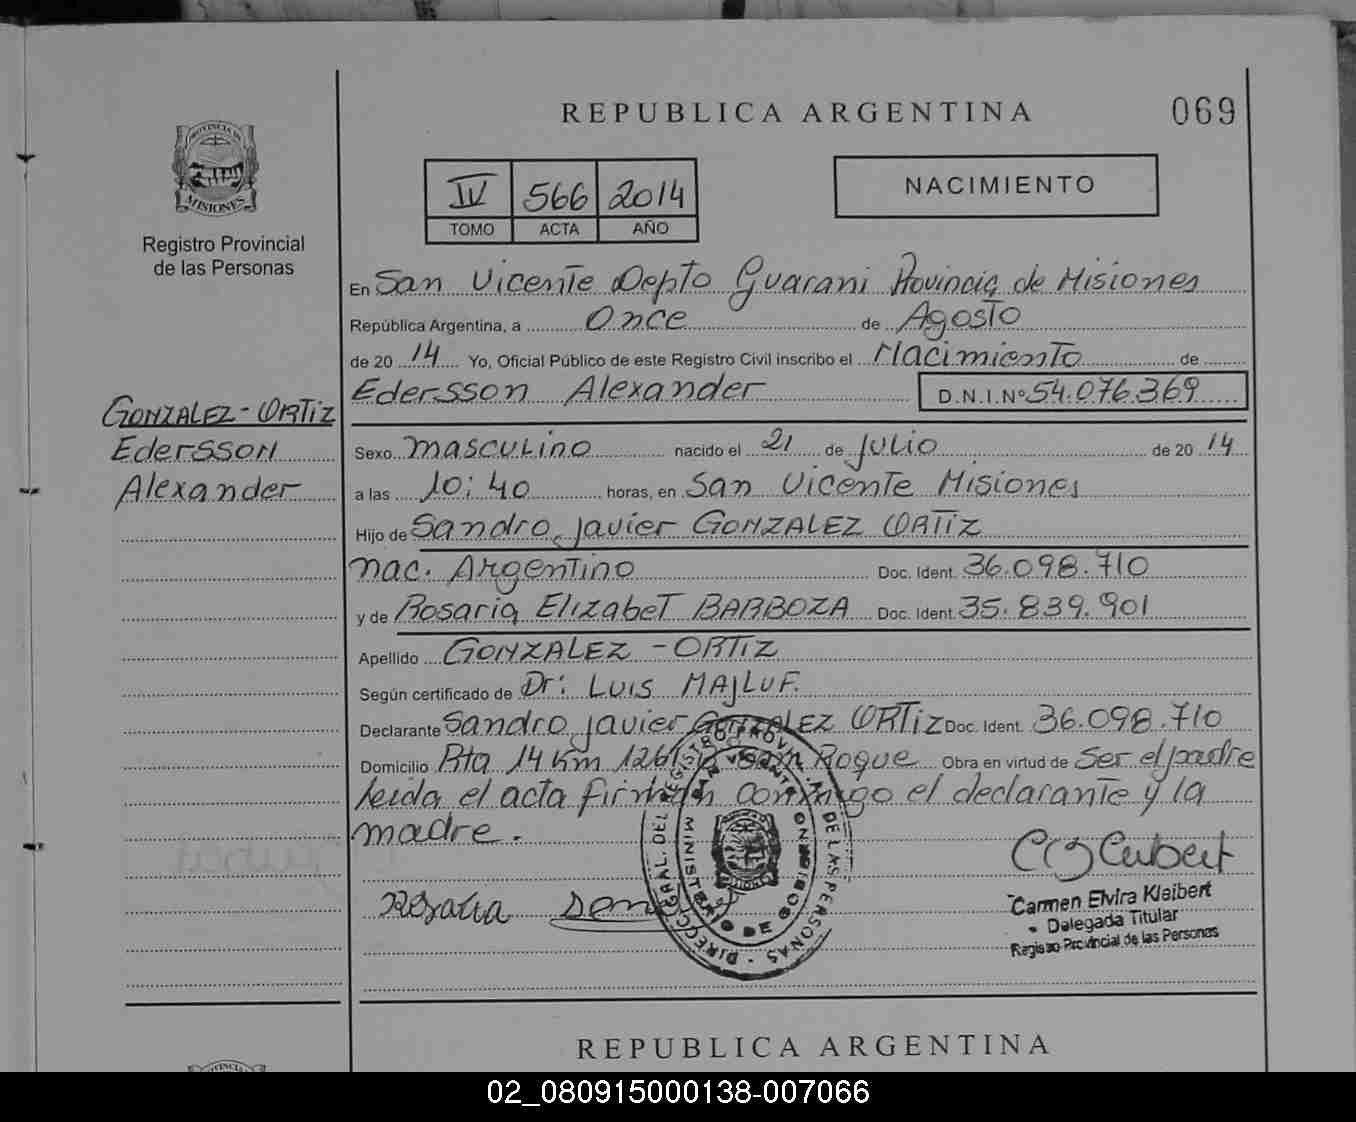 REPUBLICA ARGENTINA
069
PROVINCIA DE
MISIONES
Registro Provincial
de las Personas
IV 566 2014
TOMO ACTA AÑO
NACIMIENTO
En San Vicente Depto Guarani Provincia de Misiones
República Argentina, a Once de Agosto
de 20 14 Yo, Oficial Público de este Registro Civil inscribo el Nacimiento de
Edersson Alexander D.N.I.Nº 54.076.369
GONZALEZ - ORTIZ
Edersson
Alexander
Sexo masculino nacido el 21 de Julio de 20 14
a las 10:40 horas, en San Vicente Misiones
Hijo de Sandro Javier GONZALEZ ORTIZ
nac. Argentino Doc. Ident. 36.098.710
y de Rosaria Elizabet BARBOZA Doc. Ident. 35.839.901
Apellido GONZALEZ - ORTIZ
Según certificado de Dr: LUIS MAJLUF.
Declarante Sandro Javier GONZALEZ ORTIZ Doc. Ident. 36.098.710
Domicilio Rta 14 Km 1261 San Roque Obra en virtud de Ser el padre
leida el acta firman conmigo el declarante y la
madre.
DIRECC. GRAL. DEL REGISTRO PROVIN. DE LAS PERSONAS
SAN VICENTE
MINISTERIO DE GOBIERNO
MISIONES
Carmen Elvira Kleibert
Delegada Titular
Registro Provincial de las Personas
REPUBLICA ARGENTINA
02_080915000138-007066